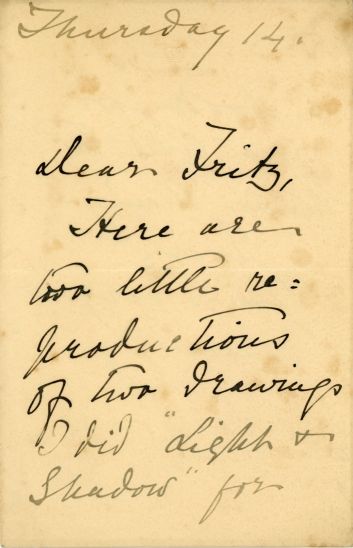 Thursday 14.
Dear Fritz,
Here are
two little re=
productions
of two drawings
I did "Light &
Shadow" for